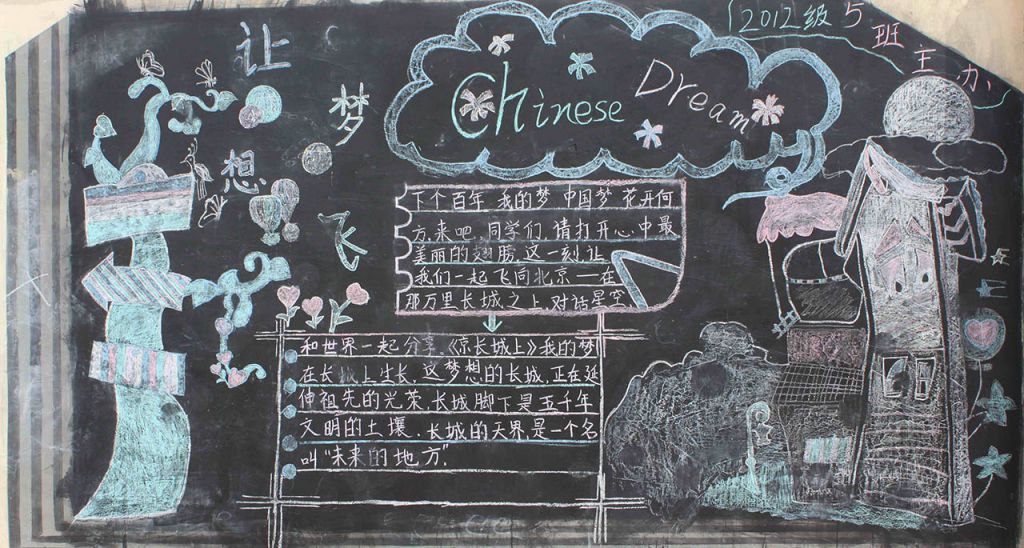 2012级5班主办
Chinese Dream
让梦想飞
下个百年 我的梦 中国梦 花开何
方.来吧.同学们.请打开心中最
美丽的翅膀.这一刻.让
我们一起飞向北京——在
那万里长城之上.对话星空
和世界一起分享.《京长城上》我的梦
在长城上生长.这梦想的长城.正在延
伸祖先的光荣.长城脚下是五千年
文明的土壤.长城的天界.是一个名
叫“未来的地方”.